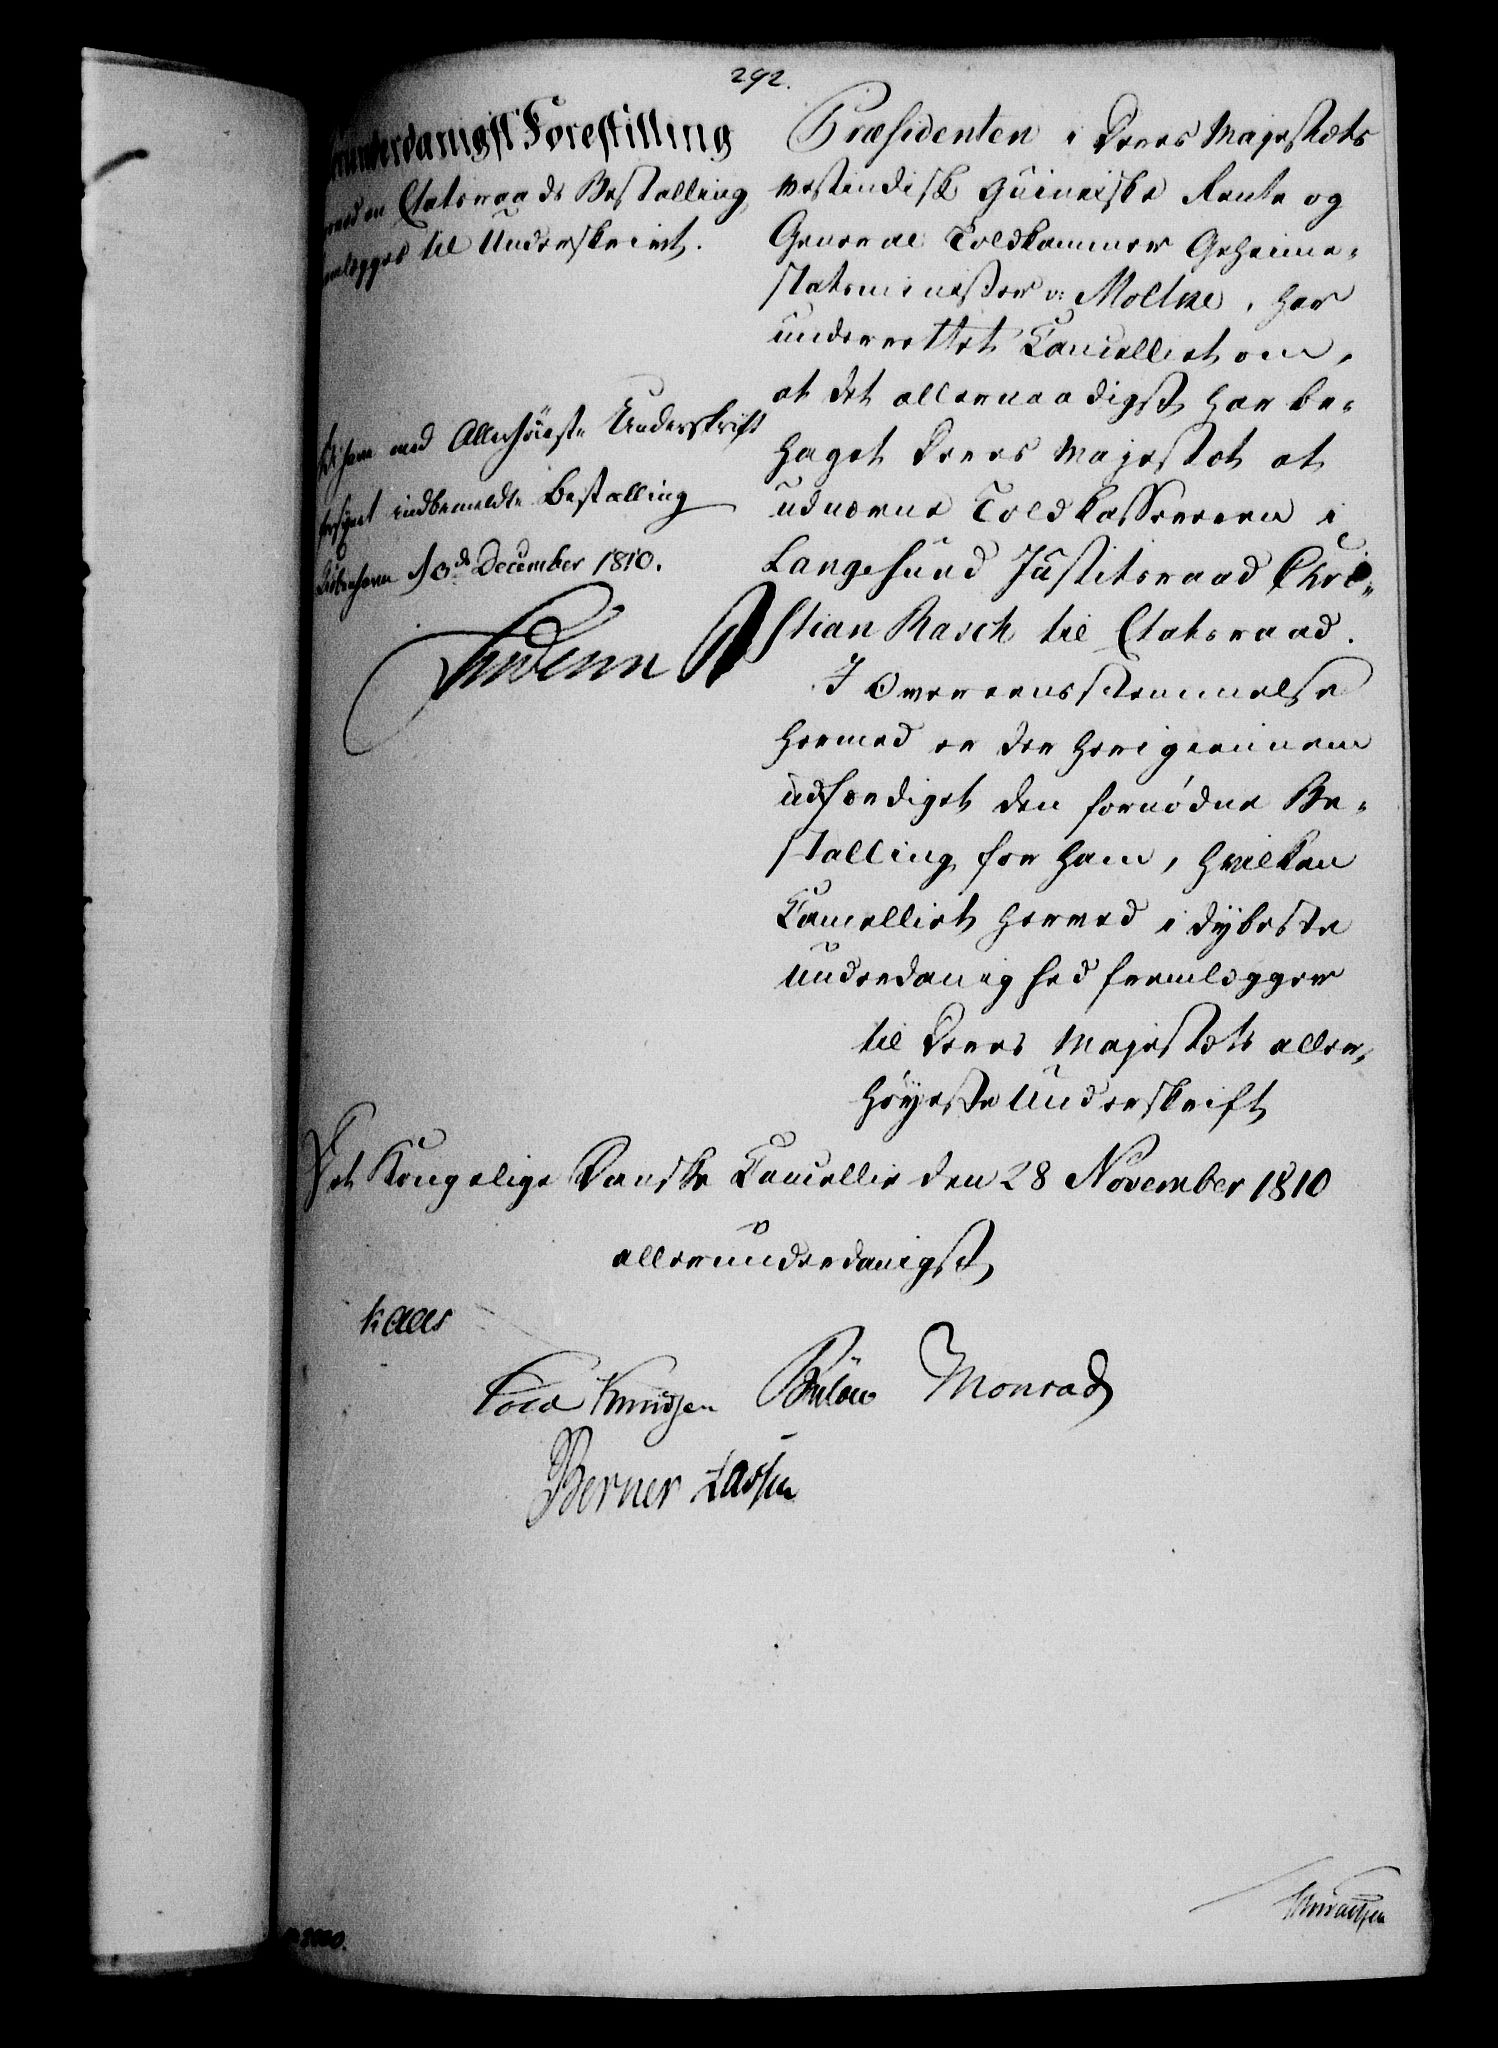 292.
Allerunderdanigst Forestilling
hvorved en Etatsraads Bestalling
fremlegges til Underskrivt.
Vi have med Allerhöieste Underskrift
forsÿnet indbemeldte Bestalling
Kiöbenhavn d 3de December 1810.
Frederik R
Præsidenten i Deres Majestæts
vestindisk guineiske Rente og
General Toldkammer Geheime-
statsminister v: Moltke, har
underrettet Cancelliet om,
at det allernaadigst har be-
haget Deres Majestæt at
udnævne Toldkasserern i
Langesund Justitsraad Chri-
stian Rasch til Etatsraad.
I Overeensstemmelse
hermed er der herigiennem
udfærdiget den fornødne Be-
stalling for ham, hvilken
Cancelliet herved i dybeste
Underdanighed fremlægger
til Deres Majestæts aller-
höyeste Underskrift
Det Kongelige Danske Cancellie den 28 November 1810
allerunderdanigst
Kaas
Cold Knudsen Bülow Monrad
Berner Lassen